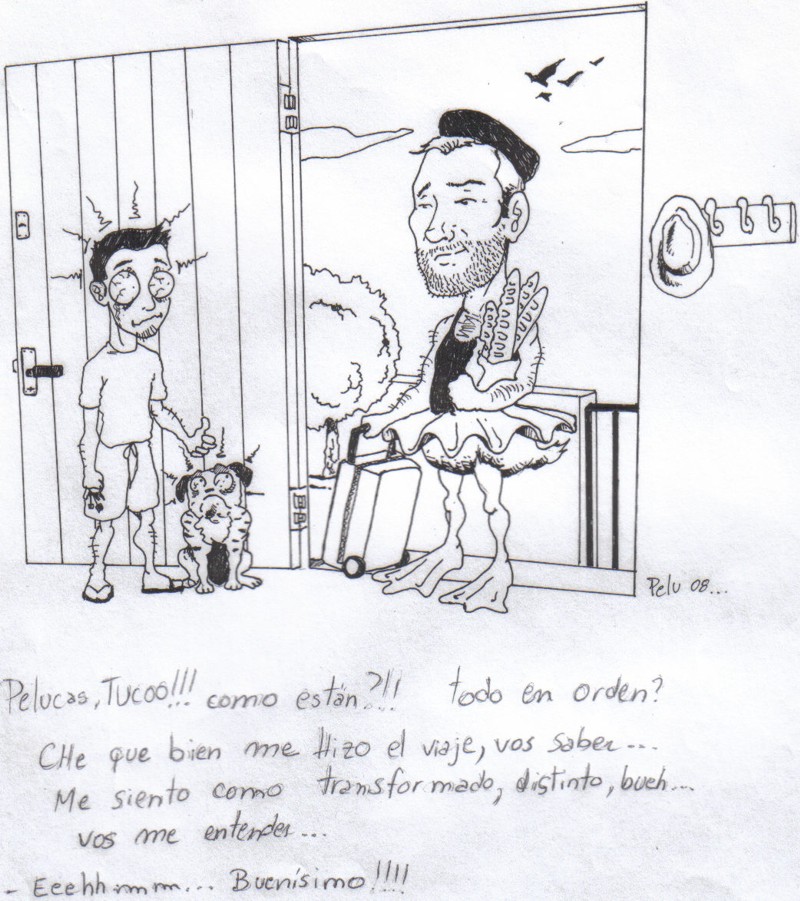 Pelu 08...
Pelucas, Tucoo!!! como están?!!! todo en orden?
CHe que bien me Hizo el viaje, vos saber...
Me siento como transformado, distinto, bueh...
vos me entender...
- Eeehhmmm... Buenísimo!!!!